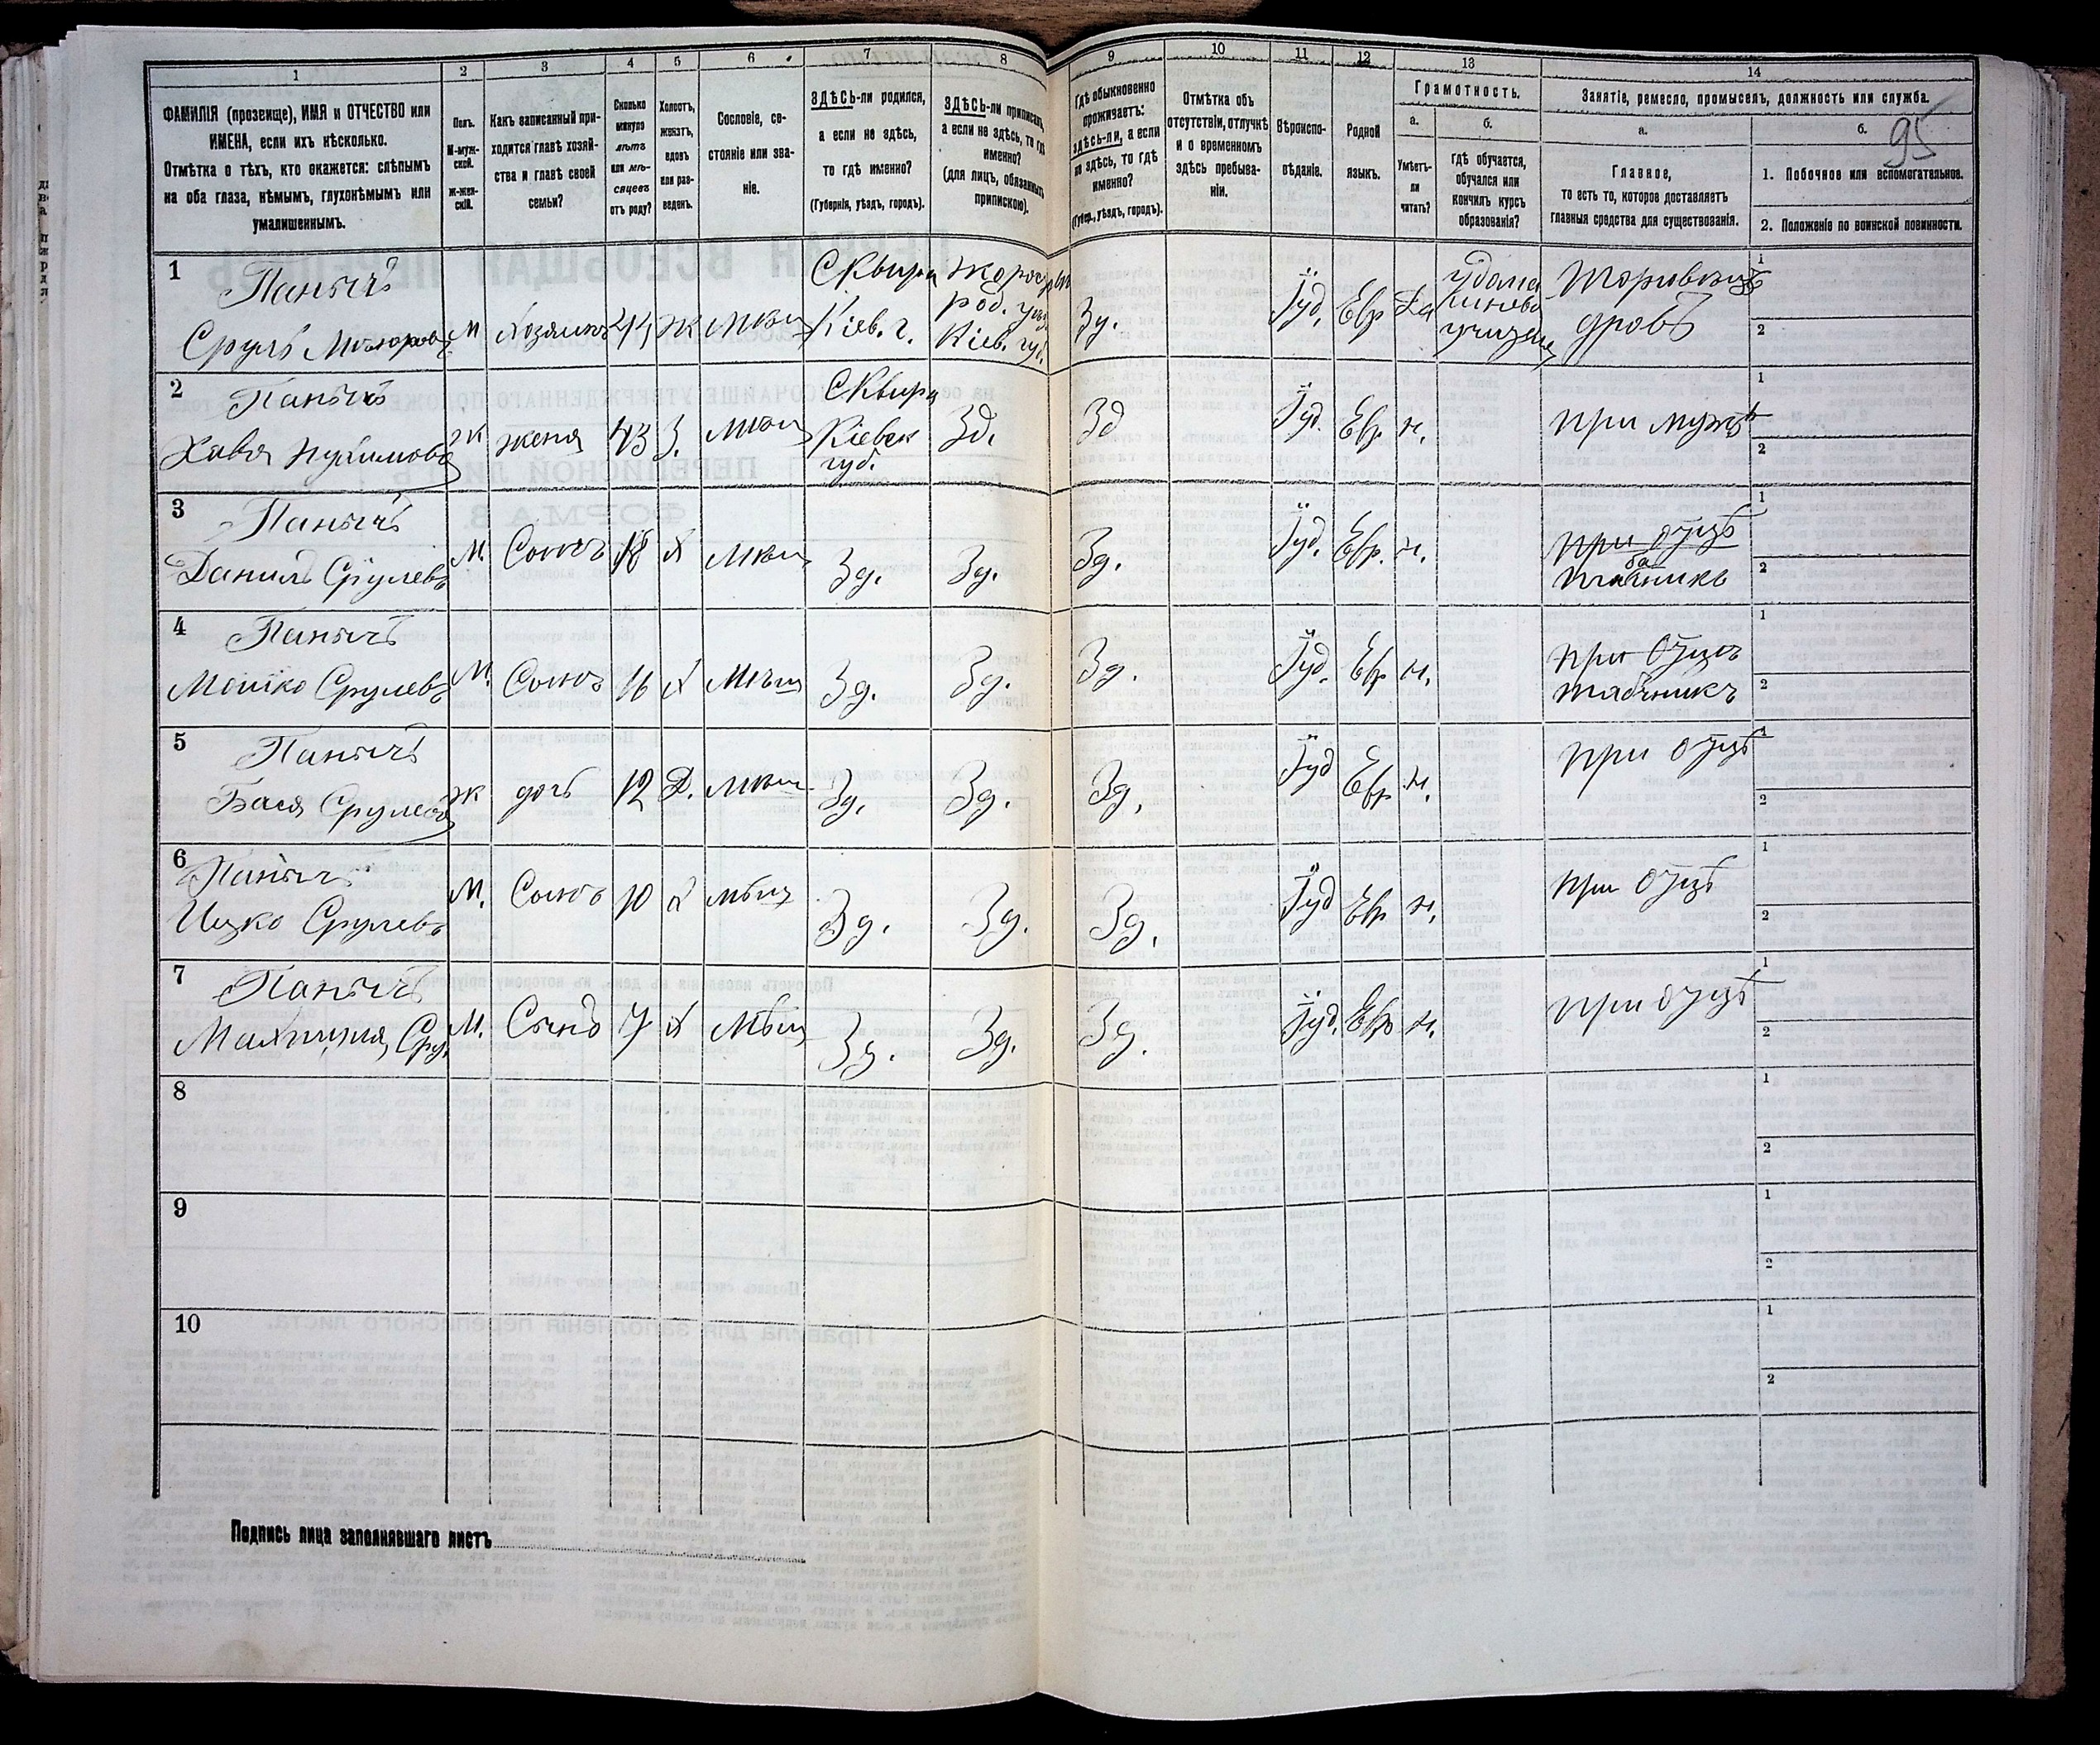 1
2
3
4
5
6
7
8
9
10
11
12
13
14
ФАМИЛІЯ (прозвище), ИМЯ и ОТЧЕСТВО или
ИМЕНА, если ихъ нѣсколько.
Отмѣтка о тѣхъ, кто окажется: слѣпымъ
на оба глаза, нѣмымъ, глухонѣмымъ или
умалишеннымъ.
Полъ.
М-муж-
ской.
Ж-жен-
скій.
Какъ записанный при-
ходится главѣ хозяй-
ства и главѣ своей
семьи?
Сколько
минуло
лѣтъ
или мѣ-
сяцевъ
отъ роду?
Холостъ,
женатъ,
вдовъ
или раз-
веденъ.
Сословіе, со-
стояніе или зва-
ніе.
ЗДѢСЬ-ли родился,
а если не здѣсь,
то гдѣ именно?
(Губернія, уѣздъ, городъ).
ЗДѢСЬ-ли приписанъ,
а если не здѣсь, то гдѣ
именно?
(для лицъ, обязанныхъ
припискою).
Гдѣ обыкновенно
проживаетъ:
здѣсь-ли, а если
не здѣсь, то гдѣ
именно?
(Губер., уѣздъ, городъ).
Отмѣтка объ
отсутствіи, отлучкѣ
и о временномъ
здѣсь пребыва-
ніи.
Вѣроиспо-
вѣданіе.
Родной
языкъ.
Грамотность.
а.
Умѣетъ-
ли
читать?
б.
гдѣ обучается,
обучался или
кончилъ курсъ
образованія?
Занятіе, ремесло, промыселъ, должность или служба.
а.
Главное,
то есть то, которое доставляетъ
главныя средства для существованія.
б.
95
1. Побочное или вспомогательное.
2. Положеніе по воинской повинности.
1
Панычъ
Сруль
М
Хозяинъ
44
Ж
Мѣщ
Сквира
Кіев. г.
Кіев. губ.
Зд.
Іуд.
Евр
Да
дровъ
1
2
2
Панычъ
Хавя
Ж
жена
43
З.
Мѣщ
Сквира
Кіевск
губ.
Зд.
Зд
Іуд.
Евр.
н.
при мужѣ
1
2
3
Панычъ
Данилъ Срулевъ
М.
Сынъ
18
Х
Мѣщ
Зд.
Зд.
Зд.
Іуд.
Евр.
н.
при отцѣ
1
2
4
Панычъ
Мошко Срулевъ
М.
Сынъ
16
Х
Мѣщ
Зд.
Зд.
Зд.
Іуд.
Евр
н.
при Отцѣ
табачникъ
1
2
5
Панычъ
Бася Срулева
Ж
дочь
12
Д.
Мѣщ
Зд.
Зд.
Зд.
Іуд
Евр
н.
при отцѣ
1
2
6
Панычъ
Ицко Срулевъ
М.
Сынъ
10
Х
мѣщ
Зд.
Зд.
Зд.
Іуд
Евр
н.
при отцѣ
1
2
7
Панычъ
М.
Сынъ
7
Х
Мѣщ
Зд.
Зд.
Зд.
Іуд.
Евр
н.
при отцѣ
1
2
8
1
2
9
1
2
10
1
2
Подпись лица заполнявшаго листъ